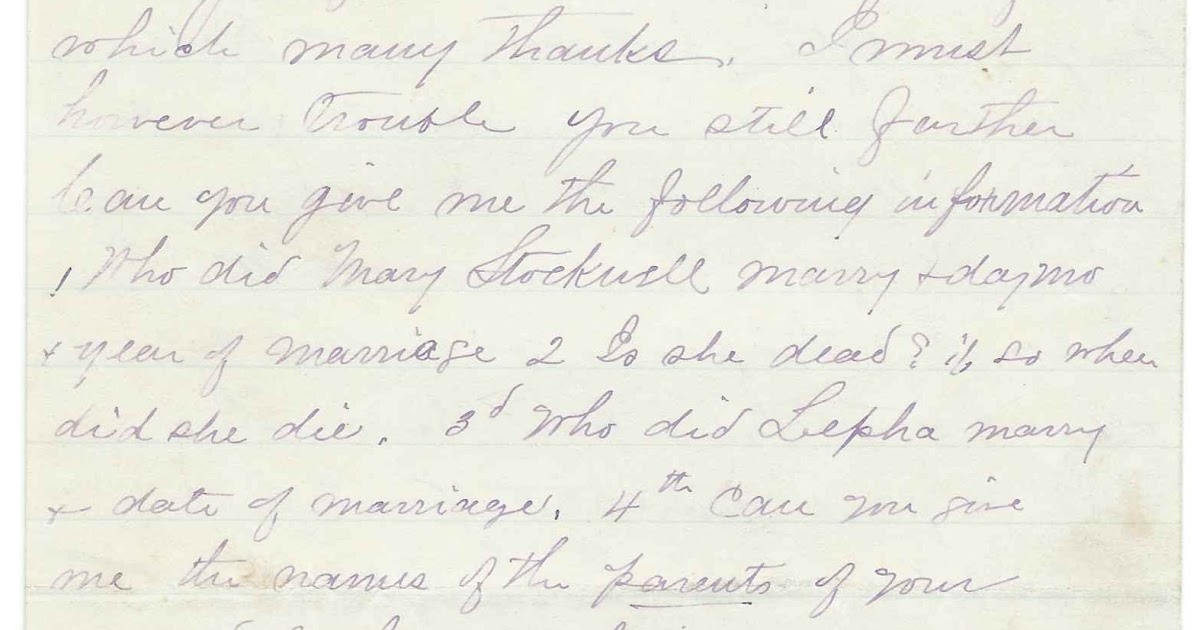 which many thanks. I must
however trouble you still further
Can you give me the following information
1 Who did Mary Stockwell marry & day mo
& year of marriage 2 Is she dead? if so when
did she die. 3d Who did Lepha marry
& date of marriage. 4th Can you give
me the names of the parents of your